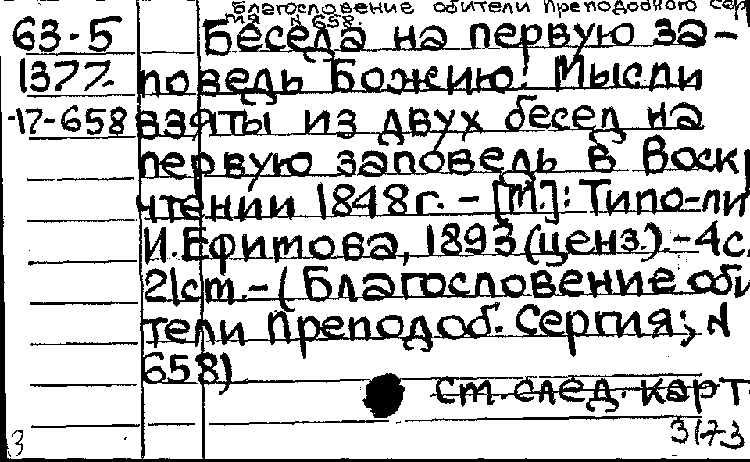 Благословение обители Преподобного Сер
гия N 658.
63-5 Беседа на первую за-
1377 поведь Божию! Мысли
-17-658 взяты из двух бесед на
первую заповедь в Воскр
чтении 1848г. - [М.]: Типо-ли
И. Ефимова, 1893 (ценз.). - 4с.
21см. - (Благословение оби
тели Преподоб. Сергия; N
658)
см. след. карт
3173
3